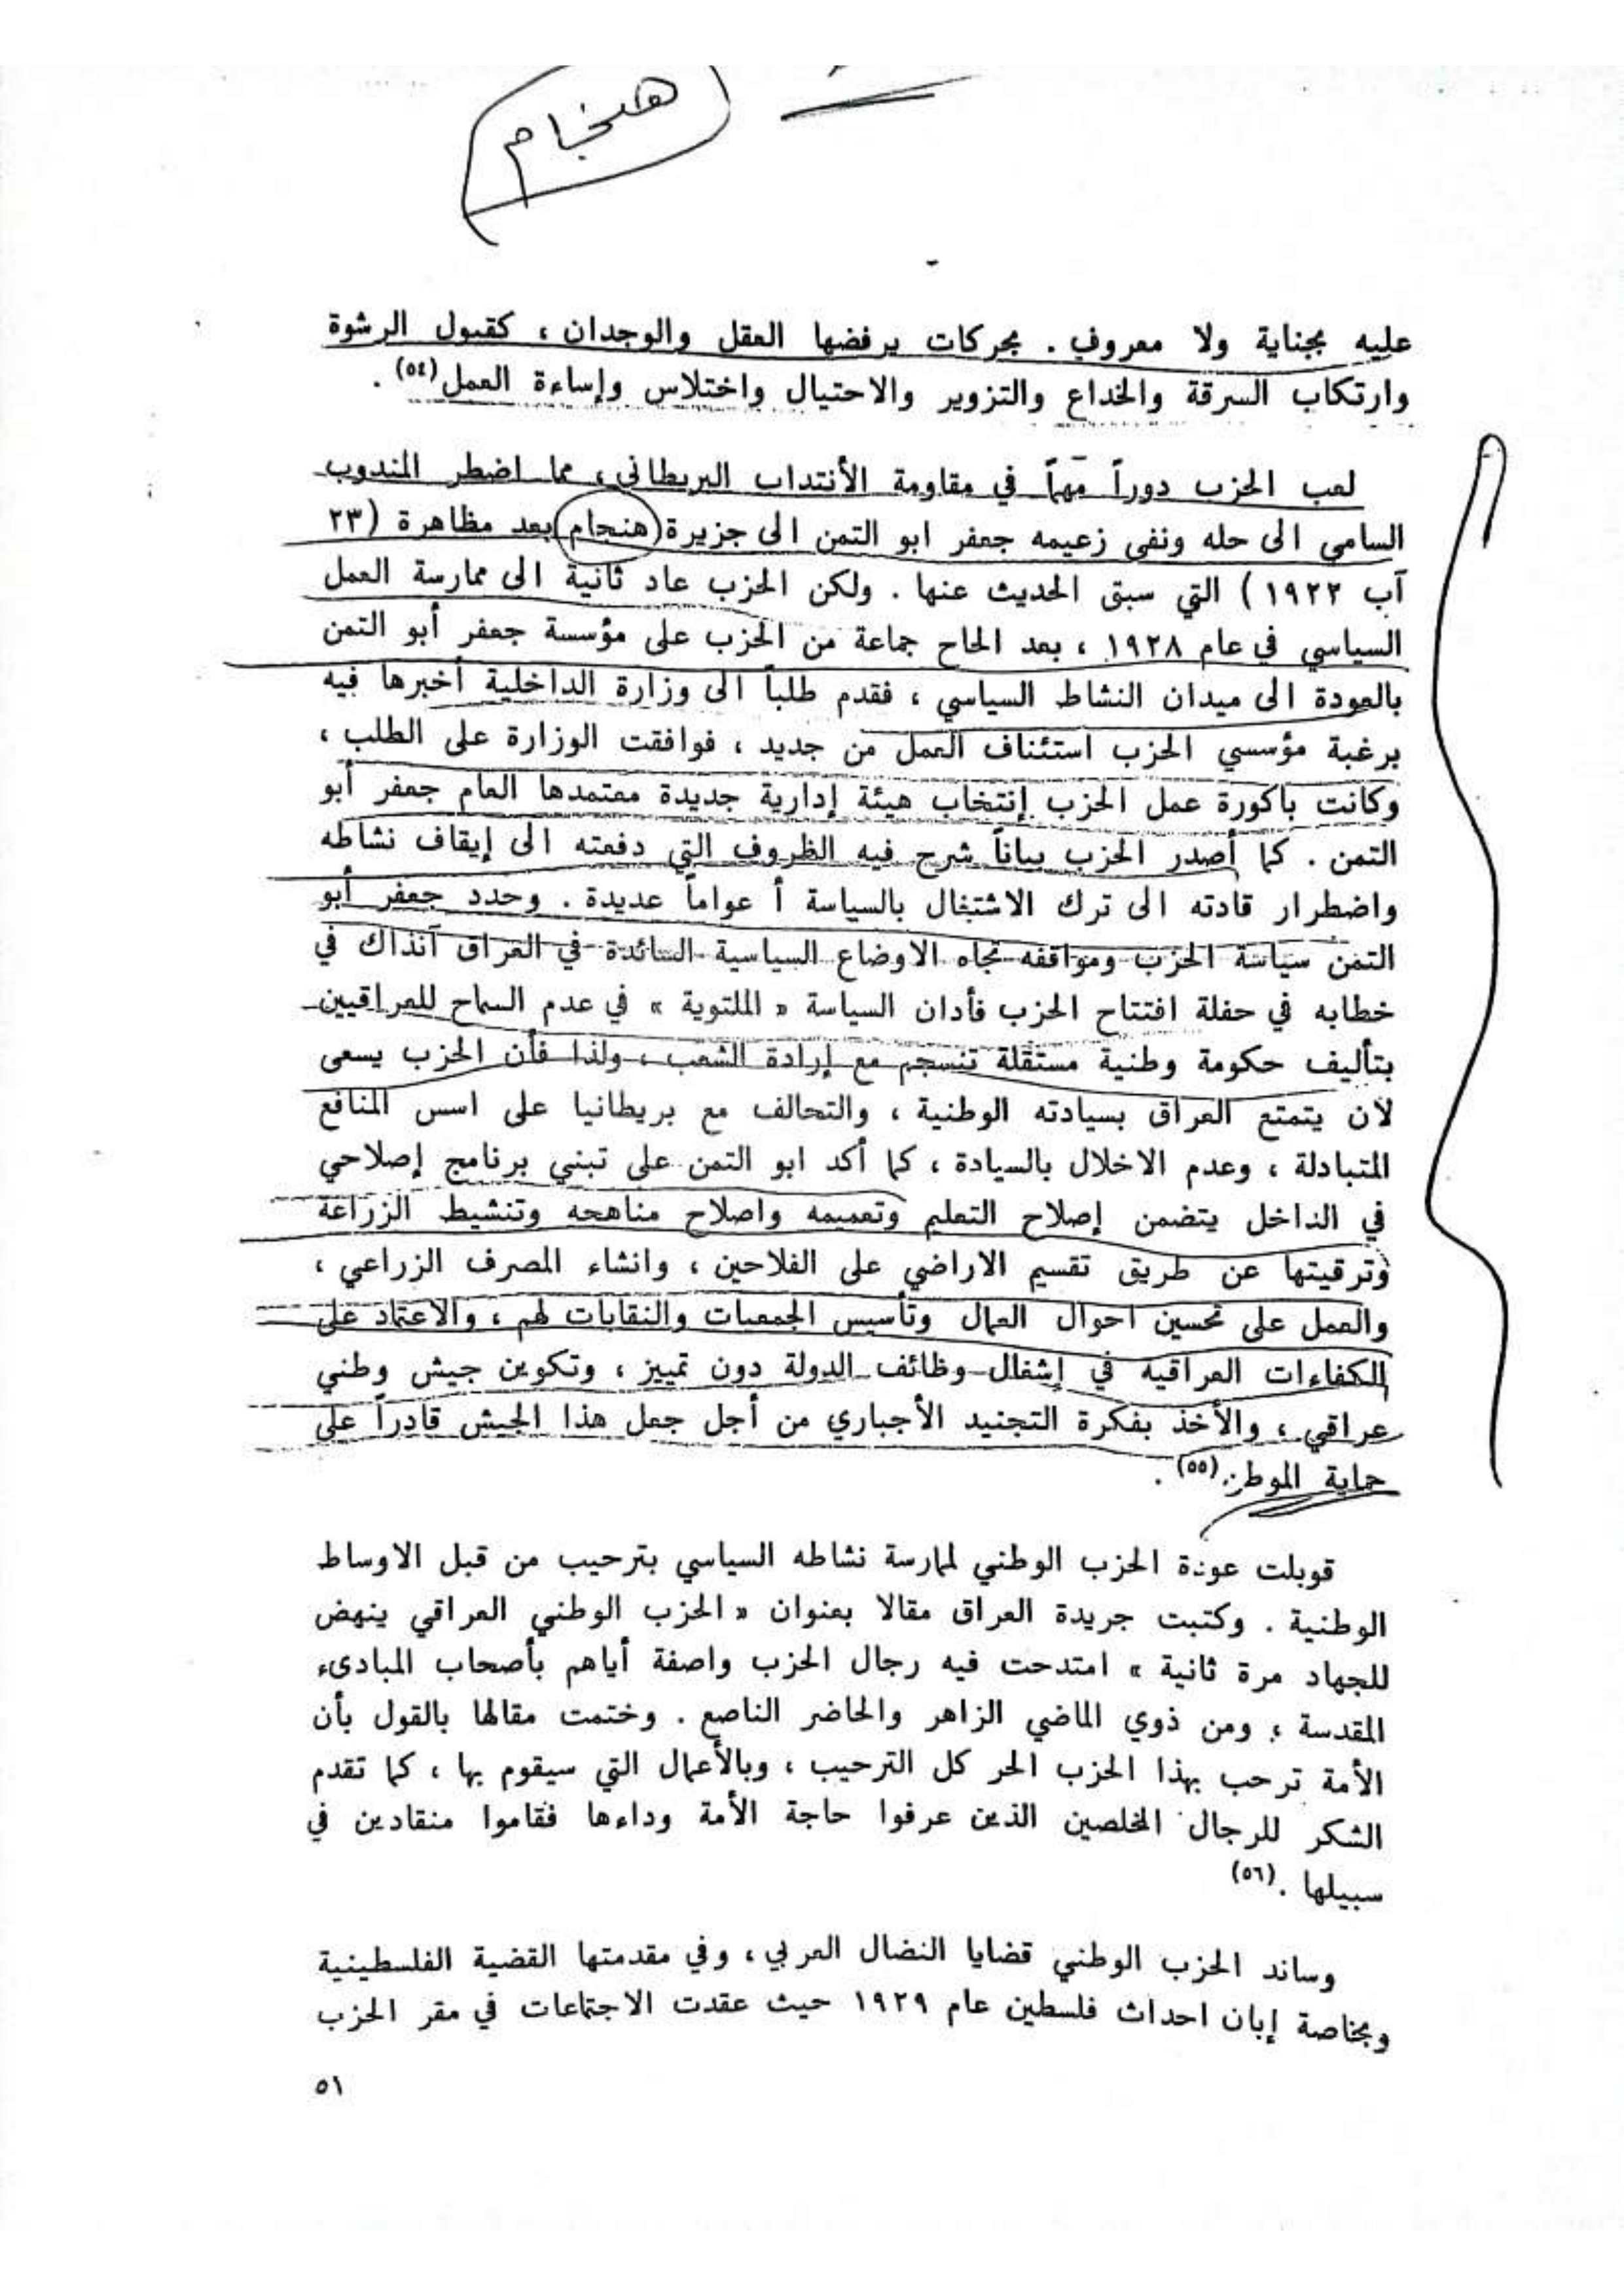 هنجام
عليه بجناية ولا معروف . بحركات يرفضها العقل والوجدان ، كقبول الرشوة
وارتكاب السرقة والخداع والتزوير والاحتيال واختلاس وإساءة العمل(٥٤) .
لعب الحزب دوراً مهماً في مقاومة الأنتداب البريطاني ، مما اضطر المندوب
السامي الى حله ونفى زعيمه جعفر ابو التمن الى جزيرة (هنجام) بعد مظاهرة (٢٣
آب ١٩٢٢ ) التي سبق الحديث عنها . ولكن الحزب عاد ثانية الى ممارسة العمل
السياسي في عام ١٩٢٨ ، بعد الحاح جماعة من الحزب على مؤسسة جعفر أبو التمن
بالعودة الى ميدان النشاط السياسي ، فقدم طلباً الى وزارة الداخلية أخبرها فيه
برغبة مؤسسي الحزب استئناف العمل من جديد ، فوافقت الوزارة على الطلب ،
وكانت باكورة عمل الحزب إنتخاب هيئة إدارية جديدة معتمدها العام جعفر أبو
التمن . كما أصدر الحزب بياناً شرح فيه الظروف التي دفعته الى إيقاف نشاطه
واضطرار قادته الى ترك الاشتغال بالسياسة أ عواماً عديدة . وحدد جعفر أبو
التمن سياسة الحزب ومواقفه تجاه الاوضاع السياسية السائدة في العراق آنذاك في
خطابه في حفلة افتتاح الحزب فأدان السياسة « الملتوية » في عدم السماح للعراقيين
بتأليف حكومة وطنية مستقلة تنسجم مع إرادة الشعب ، ولذا فأن الحزب يسعى
لأن يتمتع العراق بسيادته الوطنية ، والتحالف مع بريطانيا على اسس المنافع
المتبادلة ، وعدم الاخلال بالسيادة ، كما أكد ابو التمن على تبني برنامج إصلاحي
في الداخل يتضمن إصلاح التعليم وتعميمه واصلاح مناهجه وتنشيط الزراعة
وترقيتها عن طريق تقسيم الاراضي على الفلاحين ، وانشاء المصرف الزراعي ،
والعمل على تحسين احوال العمال وتأسيس الجمعيات والنقابات لهم ، والاعتماد على
الكفاءات العراقية في إشغال وظائف الدولة دون تمييز ، وتكوين جيش وطني
عراقي ، والأخذ بفكرة التجنيد الأجباري من أجل جعل هذا الجيش قادراً على
حماية الموطن(٥٥) .
قوبلت عودة الحزب الوطني لممارسة نشاطه السياسي بترحيب من قبل الاوساط
الوطنية . وكتبت جريدة العراق مقالا بعنوان « الحزب الوطني العراقي ينهض
للجهاد مرة ثانية » امتدحت فيه رجال الحزب واصفة أياهم بأصحاب المبادىء
المقدسة ، ومن ذوي الماضي الزاهر والحاضر الناصع . وختمت مقالها بالقول بأن
الأمة ترحب بهذا الحزب الحر كل الترحيب ، وبالأعمال التي سيقوم بها ، كما تقدم
الشكر للرجال المخلصين الذين عرفوا حاجة الأمة وداءها فقاموا منقادين في
سبيلها .(٥٦)
وساند الحزب الوطني قضايا النضال العربي ، وفي مقدمتها القضية الفلسطينية
وبخاصة إبان احداث فلسطين عام ١٩٢٩ حيث عقدت الاجتماعات في مقر الحزب
٥١